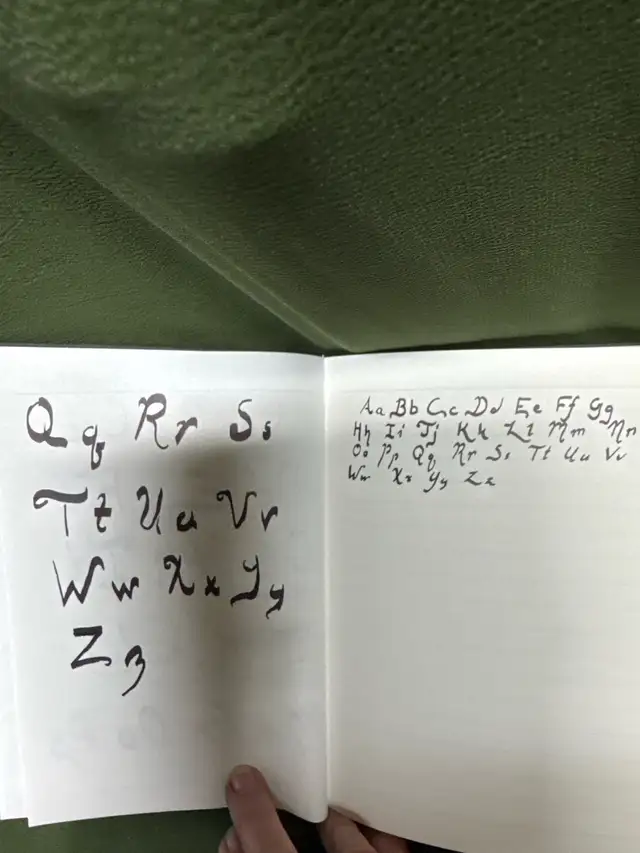 Qq Rr Ss
Tt Uu Vv
Ww Xx Yy
Zz
Aa Bb Cc Dd Ee Ff Gg
Hh Ii Jj Kk Ll Mm Nn
Oo Pp Qq Rr Ss Tt Uu Vv
Ww Xx Yy Zz